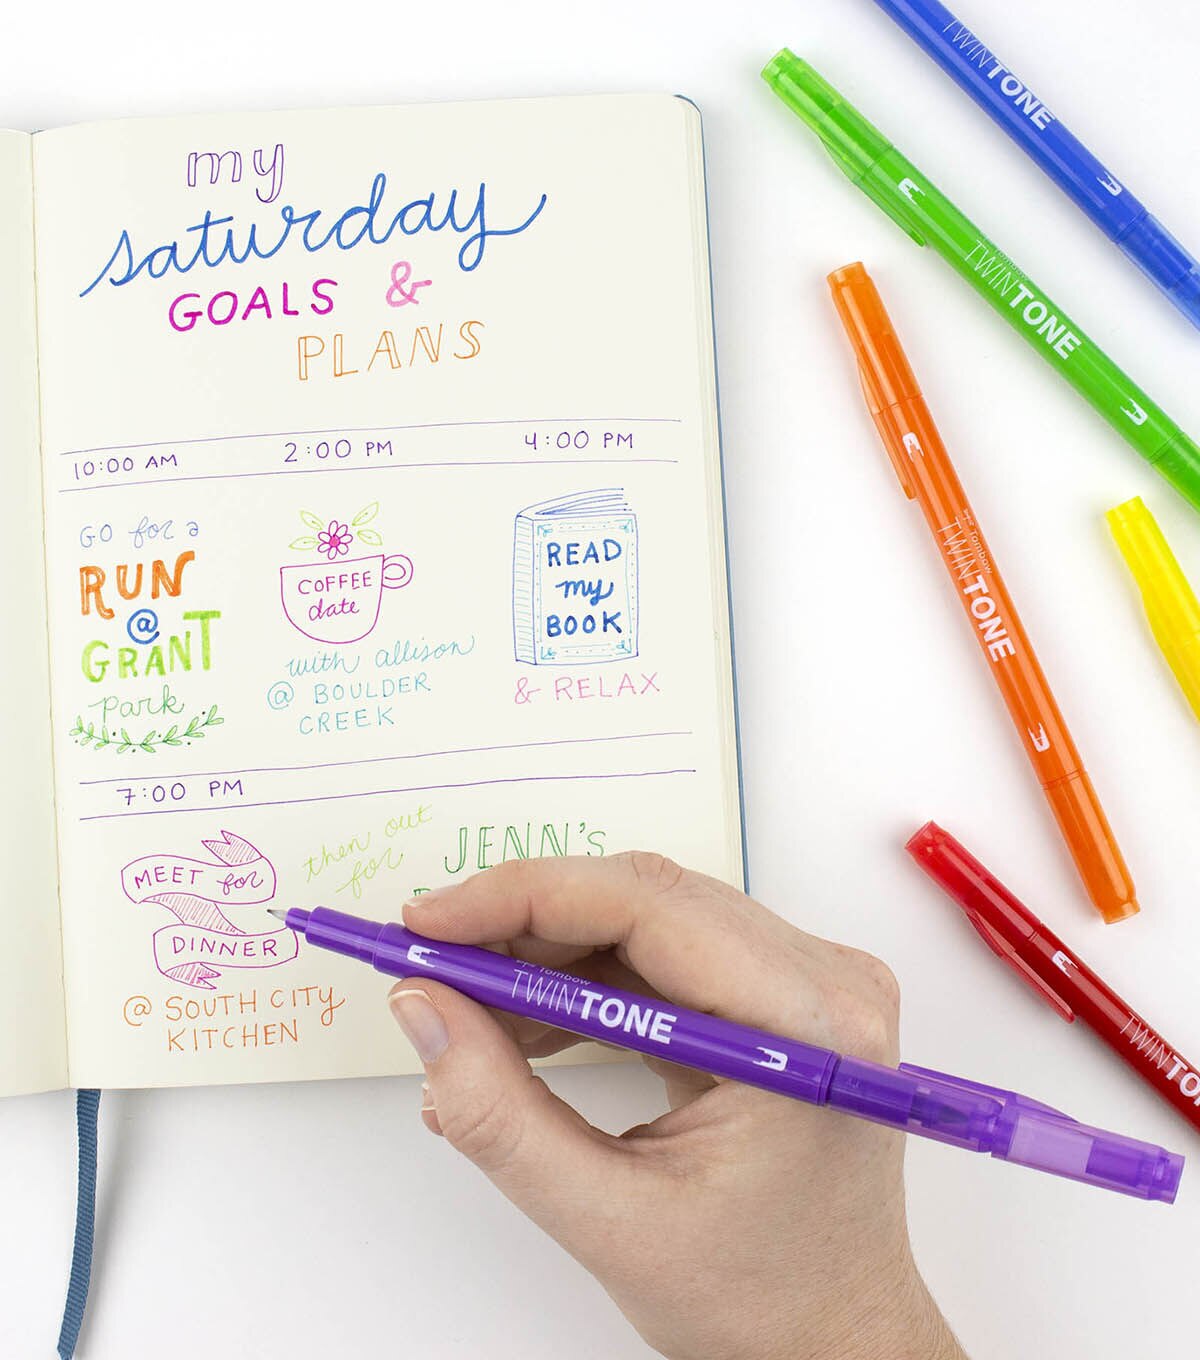 my
saturday
GOALS &
PLANS
10:00 AM
2:00 PM
4:00 PM
GO for a
RUN
@
GRANT
Park
COFFEE
date
with allison
@ BOULDER
CREEK
READ
my
BOOK
& RELAX
7:00 PM
MEET for
DINNER
@ SOUTH CITY
KITCHEN
then out
for
JENN'S
TWINTONE
Tombow
TWINTONE
by Tombow
TWINTONE
by Tombow
TWINTONE
TWINTO